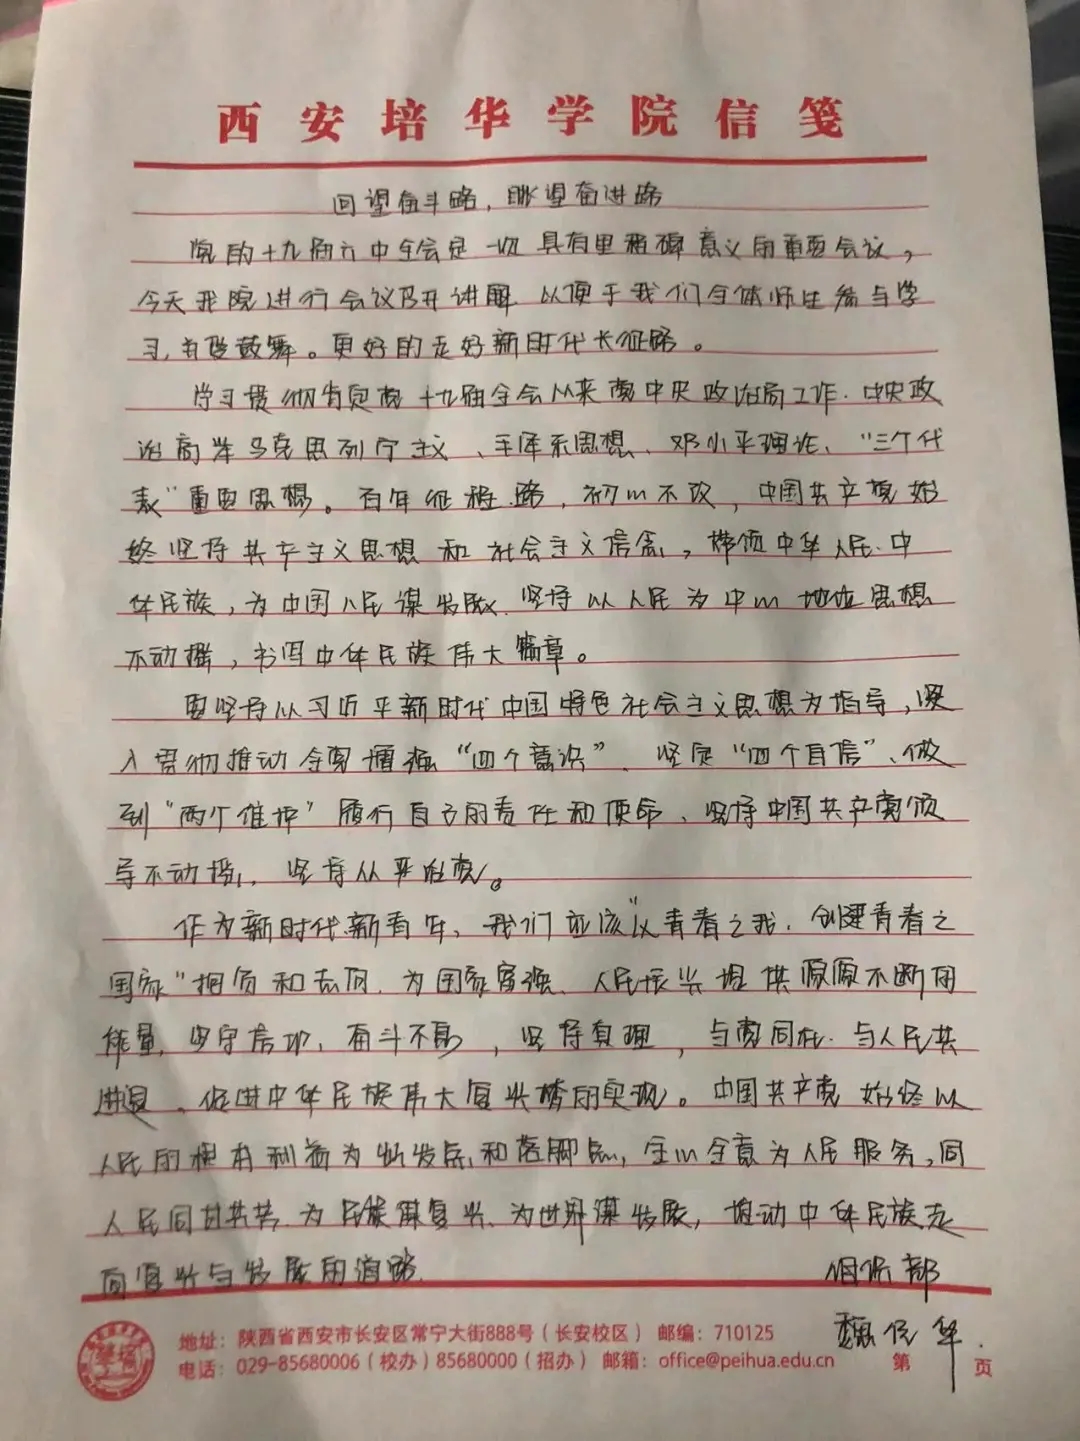 西安培华学院信笺
回望奋斗路，眺望奋进路
党的十九届六中全会是一次具有里程碑意义的重要会议，
今天我院进行会议召开讲解 以便于我们全体师生参与学
习，备受鼓舞。更好的走好新时代长征路。
学习贯彻肯定党十九届全会以来党中央政治局工作．中央政
治局举马克思列宁主义、毛泽东思想、邓小平理论、“三个代
表”重要思想。百年征程路，初心不改，中国共产党始
终坚持共产主义思想和社会主义信念，带领中华人民．中
华民族，为中国人民谋发展．坚持以人民为中心地位思想
不动摇，书写中华民族伟大篇章。
要坚持以习近平新时代中国特色社会主义思想为指导，深
入贯彻推动全党增强“四个意识”、坚定“四个自信”、做
到“两个维护”履行自己的责任和使命、坚持中国共产党领
导不动摇，坚持从严治党。
作为新时代新青年、我们应该“以青春之我．创建青春之
国家”担负和去向．为国家富强、人民振兴提供源源不断的
能量，坚守信仰、奋斗不息，坚持真理，与党同在．与人民共
进退、促进中华民族伟大复兴梦的实现。中国共产党始终以
人民的根本利益为出发点和落脚点，全心全意为人民服务，同
人民同甘共苦．为民族谋复兴、为世界谋发展，推动中华民族走
向复兴与发展的道路．
部
魏 华
地址：陕西省西安市长安区常宁大街888号（长安校区） 邮编：710125
电话：029-85680006（校办）85680000（招办） 邮箱：office@peihua.edu.cn 第 页